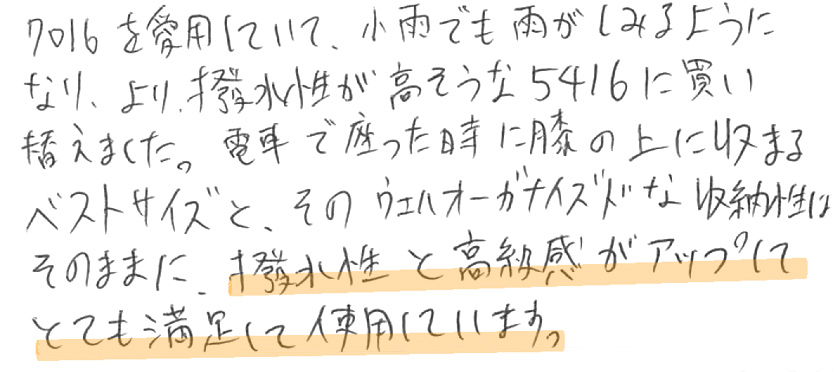 7016を愛用していて、小雨でも雨がしみるように
なり、より撥水性が高そうな5416に買い
替えました。電車で座った時に膝の上に収まる
ベストサイズと、そのウェルオーガナイズドな収納性は
そのままに、撥水性と高級感がアップして
とても満足して使用しています。